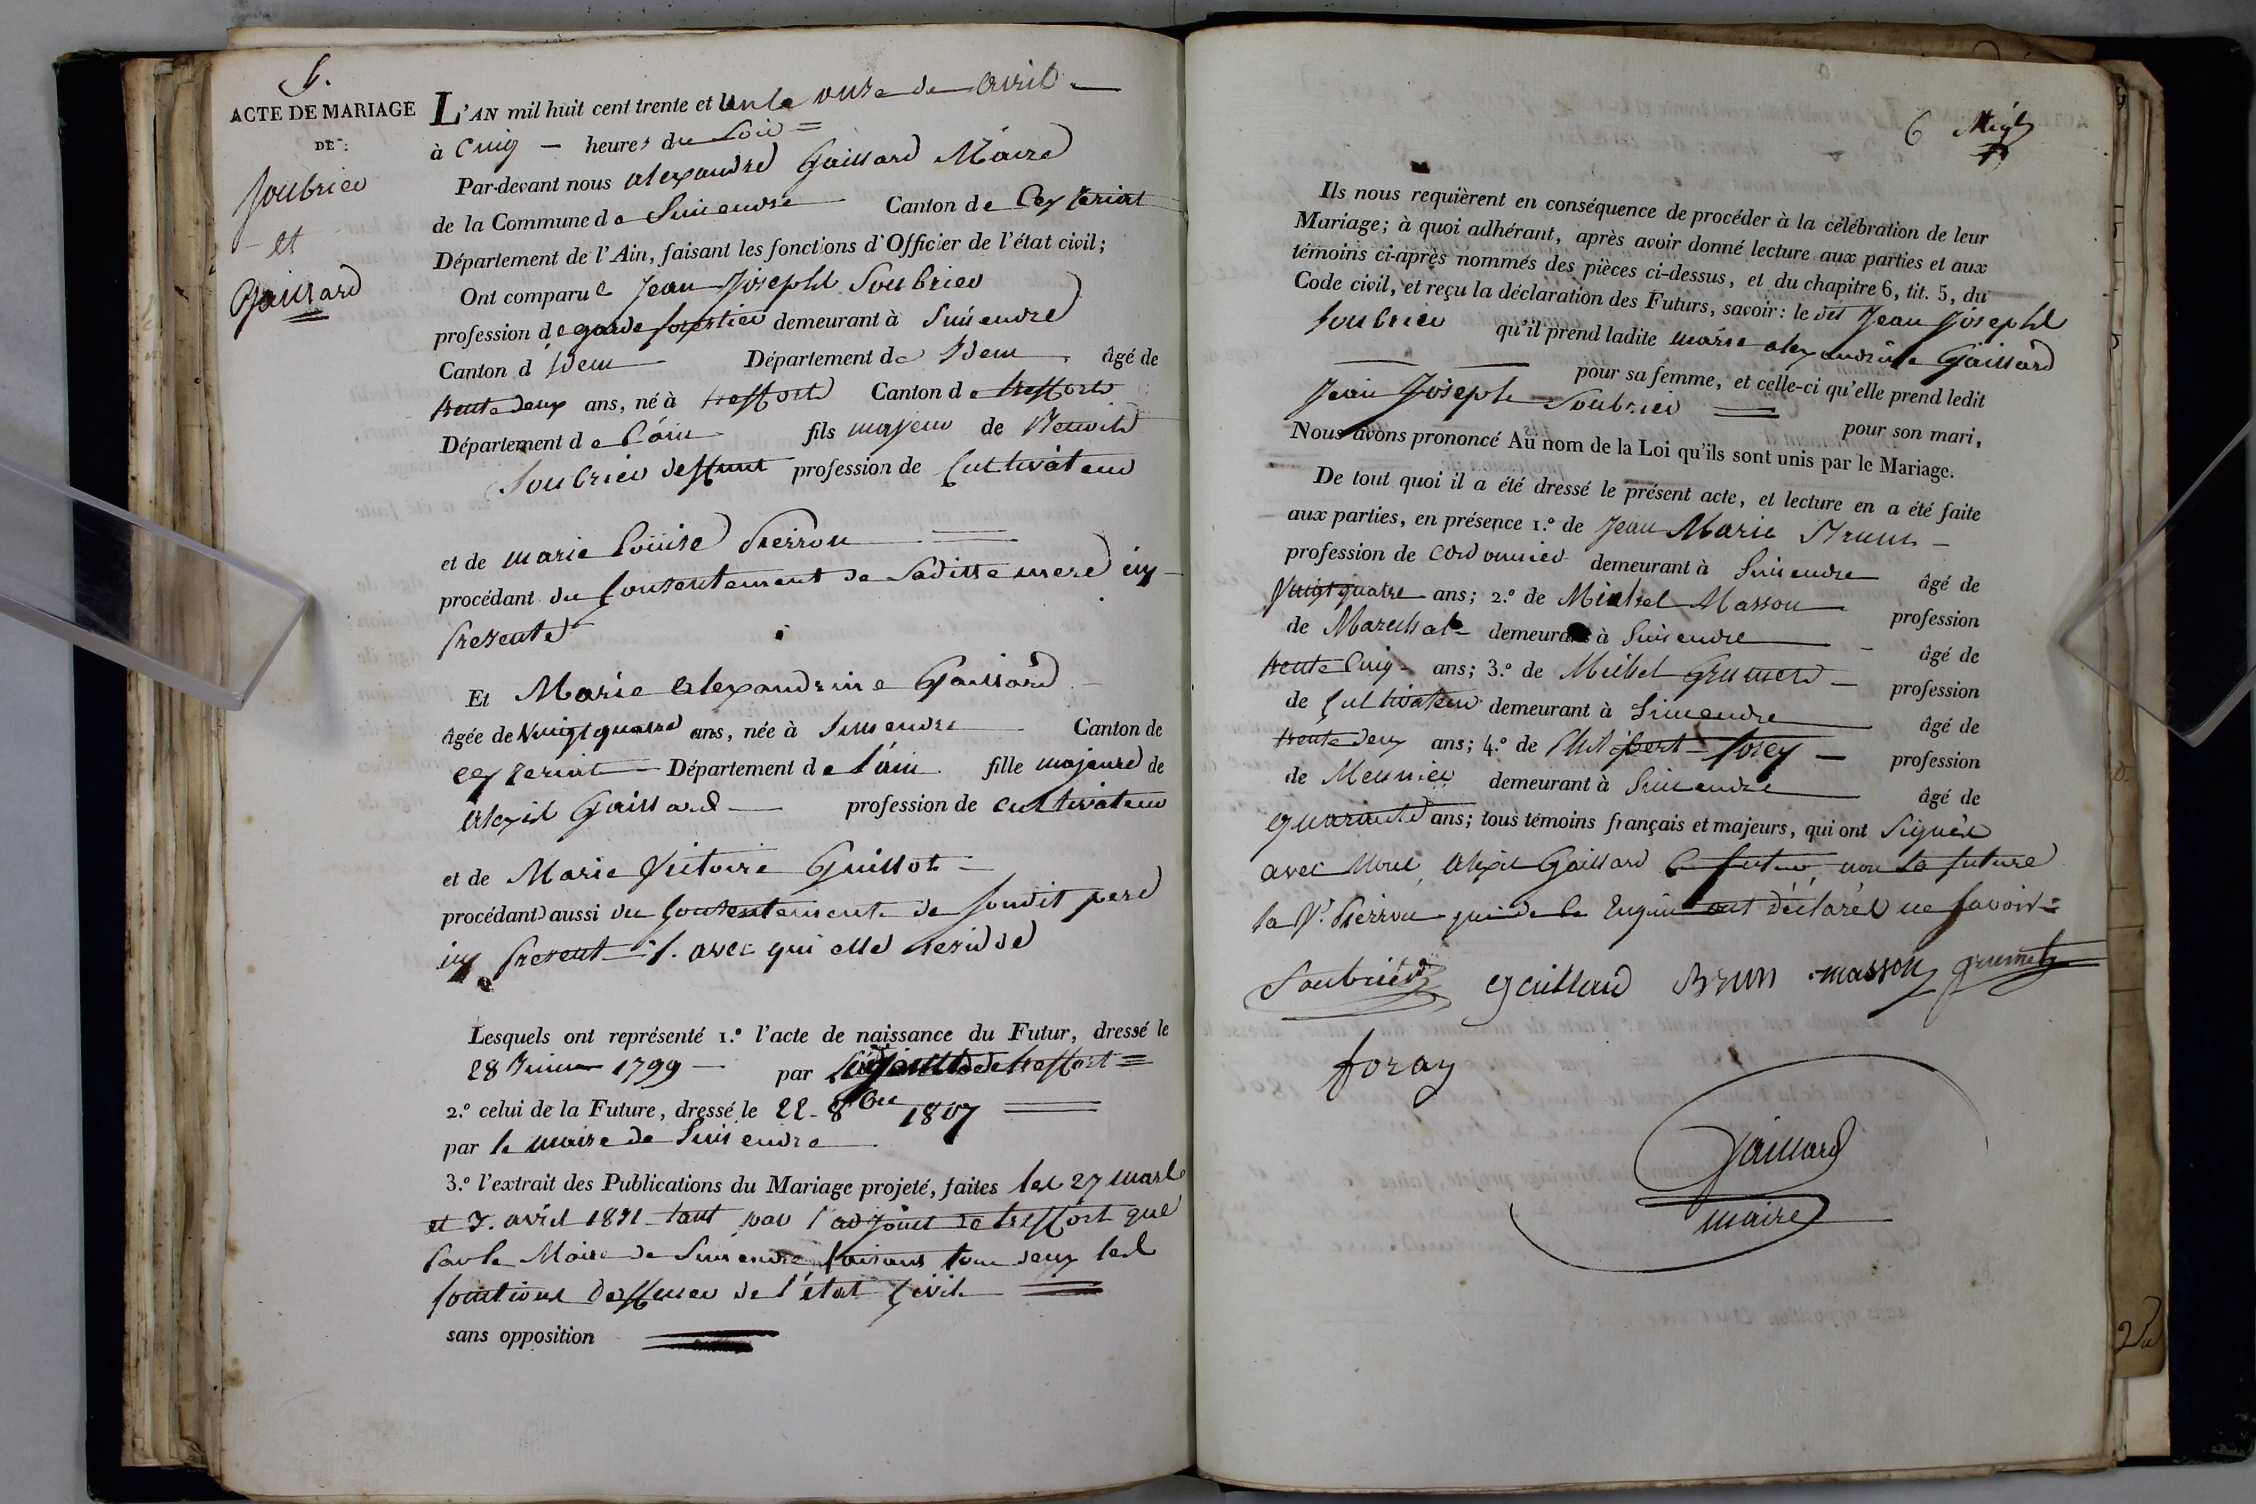 ACTE DE MARIAGE
DE
Soubrier
et
Gaillard
L'AN mil huit cent trente et un le onze de avril
à Cinq heures du Soir
Par-devant nous alexandre Gaillard Maire
de la Commune de Simandre Canton de Ceyzeriat
Département de l'Ain, faisant les fonctions d'Officier de l'état civil;
Ont comparu Jean Joseph Soubrier
profession de garde forestier demeurant à Simandre
Canton d'idem Département de Idem âgé de
trente deux ans, né à treffort Canton de treffort
Département de l'ain fils majeur de
Soubrier deffunt profession de Cultivateur
et de marie Louise Pierron
procédant du Consentement de Saditte mere icy
presente
Et Marie Alexandrine Gaillard
âgée de Vingt quatre ans, née à Simandre Canton de
ceyzeriat Département de l'ain fille majeure de
Alexis Gaillard profession de cultivateur
et de Marie Victoire Guillot
procédant aussi du Consentement de Sondit pere
icy present avec qui elle reside
Lesquels ont représenté 1.º l'acte de naissance du Futur, dressé le
28 1799 par de treffort
2.º celui de la Future, dressé le 22 8bre 1807
par le maire de Simandre
3.º l'extrait des Publications du Mariage projeté, faites les 27 mars
et 3. avril 1831 tant par l'adjoint de treffort que
par le Maire de Simandre faisant tous deux les
fonctions d'officier de l'état Civil
sans opposition
6
Ils nous requièrent en conséquence de procéder à la célébration de leur
Mariage; à quoi adhérant, après avoir donné lecture aux parties et aux
témoins ci-après nommés des pièces ci-dessus, et du chapitre 6, tit. 5, du
Code civil, et reçu la déclaration des Futurs, savoir: le dit Jean Joseph
Soubrier qu'il prend ladite marie alexandrine Gaillard
pour sa femme, et celle-ci qu'elle prend ledit
Jean Joseph Soubrier pour son mari,
Nous avons prononcé Au nom de la Loi qu'ils sont unis par le Mariage.
De tout quoi il a été dressé le présent acte, et lecture en a été faite
aux parties, en présence 1.º de Jean Marie Brun
profession de cordonnier demeurant à Simandre âgé de
Vingt quatre ans; 2.º de Michel Masson profession
de Marechal demeurant à Simandre âgé de
trente Cinq ans; 3.º de Michel Grumet profession
de Cultivateur demeurant à Simandre âgé de
trente deux ans; 4.º de Philibert Forey profession
de Meunier demeurant à Simandre âgé de
quarante ans; tous témoins français et majeurs, qui ont Signés
avec nous, Alexis Gaillard le futur, non la future
la Ve Pierron qui de ce Enquis ont déclarés ne savoir
Soubrier gaillard Brun masson grumet
foray
Gaillard
maire